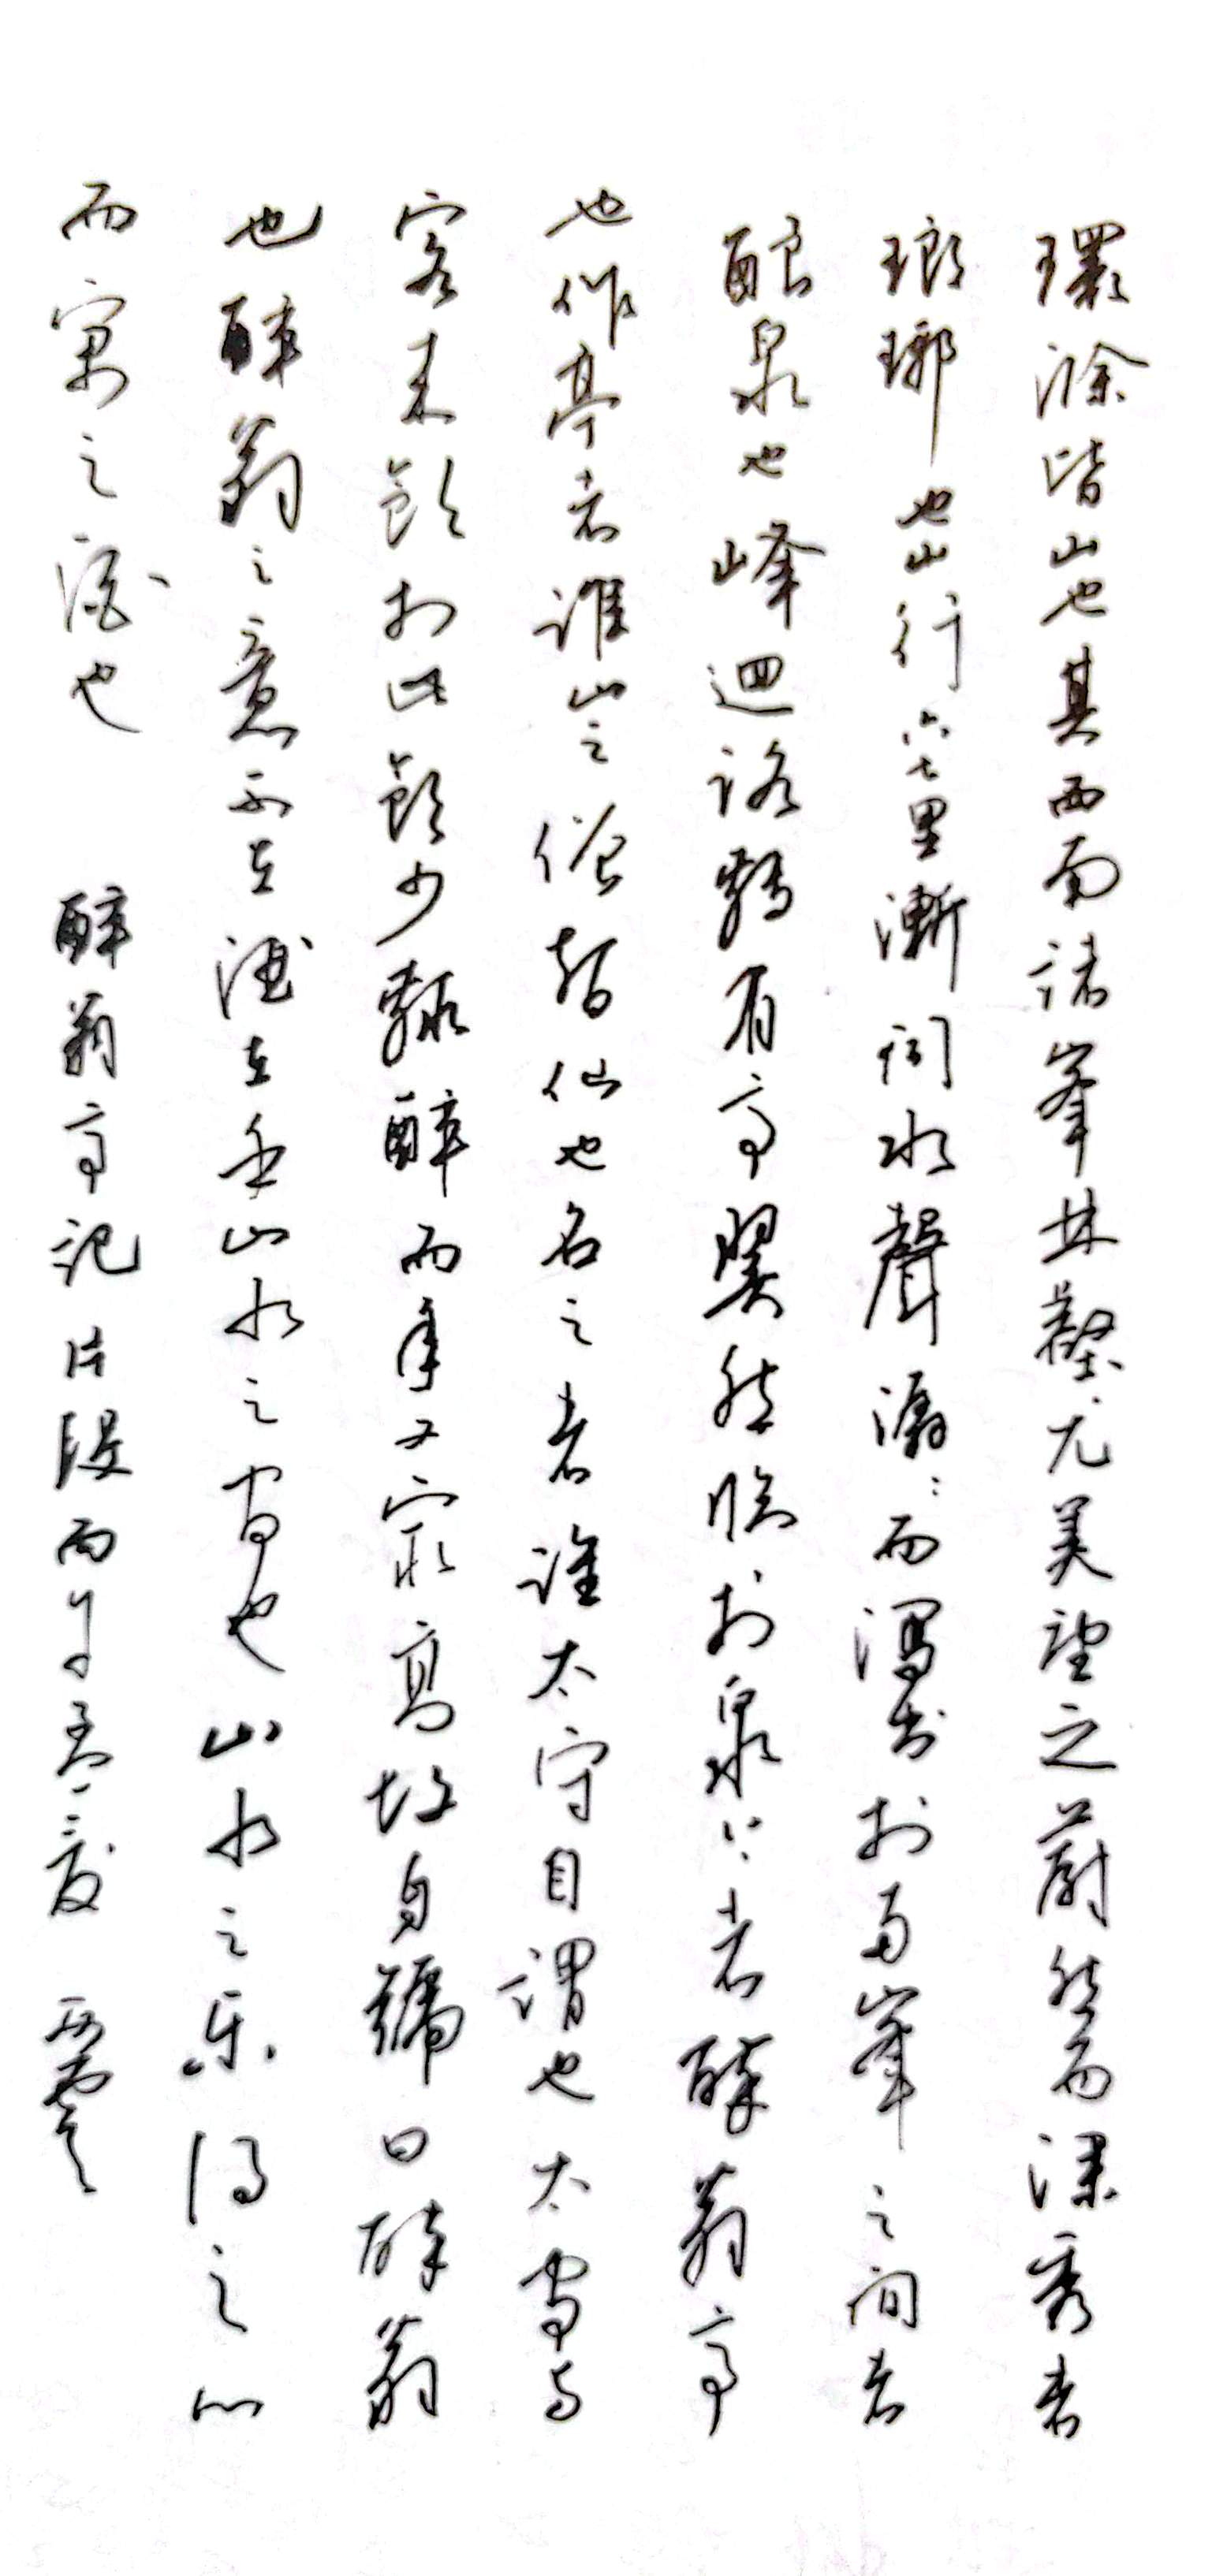 環滁皆山也其西南諸峯林壑尤美望之蔚然而深秀者
瑯琊也山行六七里漸聞水聲潺〻而瀉出於兩峯之間者
釀泉也峰迴路轉有亭翼然臨於泉上者醉翁亭
也作亭者誰山之僧智仙也名之者誰太守自謂也太守与
客来飲於此飲少輒醉而年又最高故自號曰醉翁
也醉翁之意不在酒在乎山水之间也山水之乐得之心
而寓之酒也 醉翁亭記片段